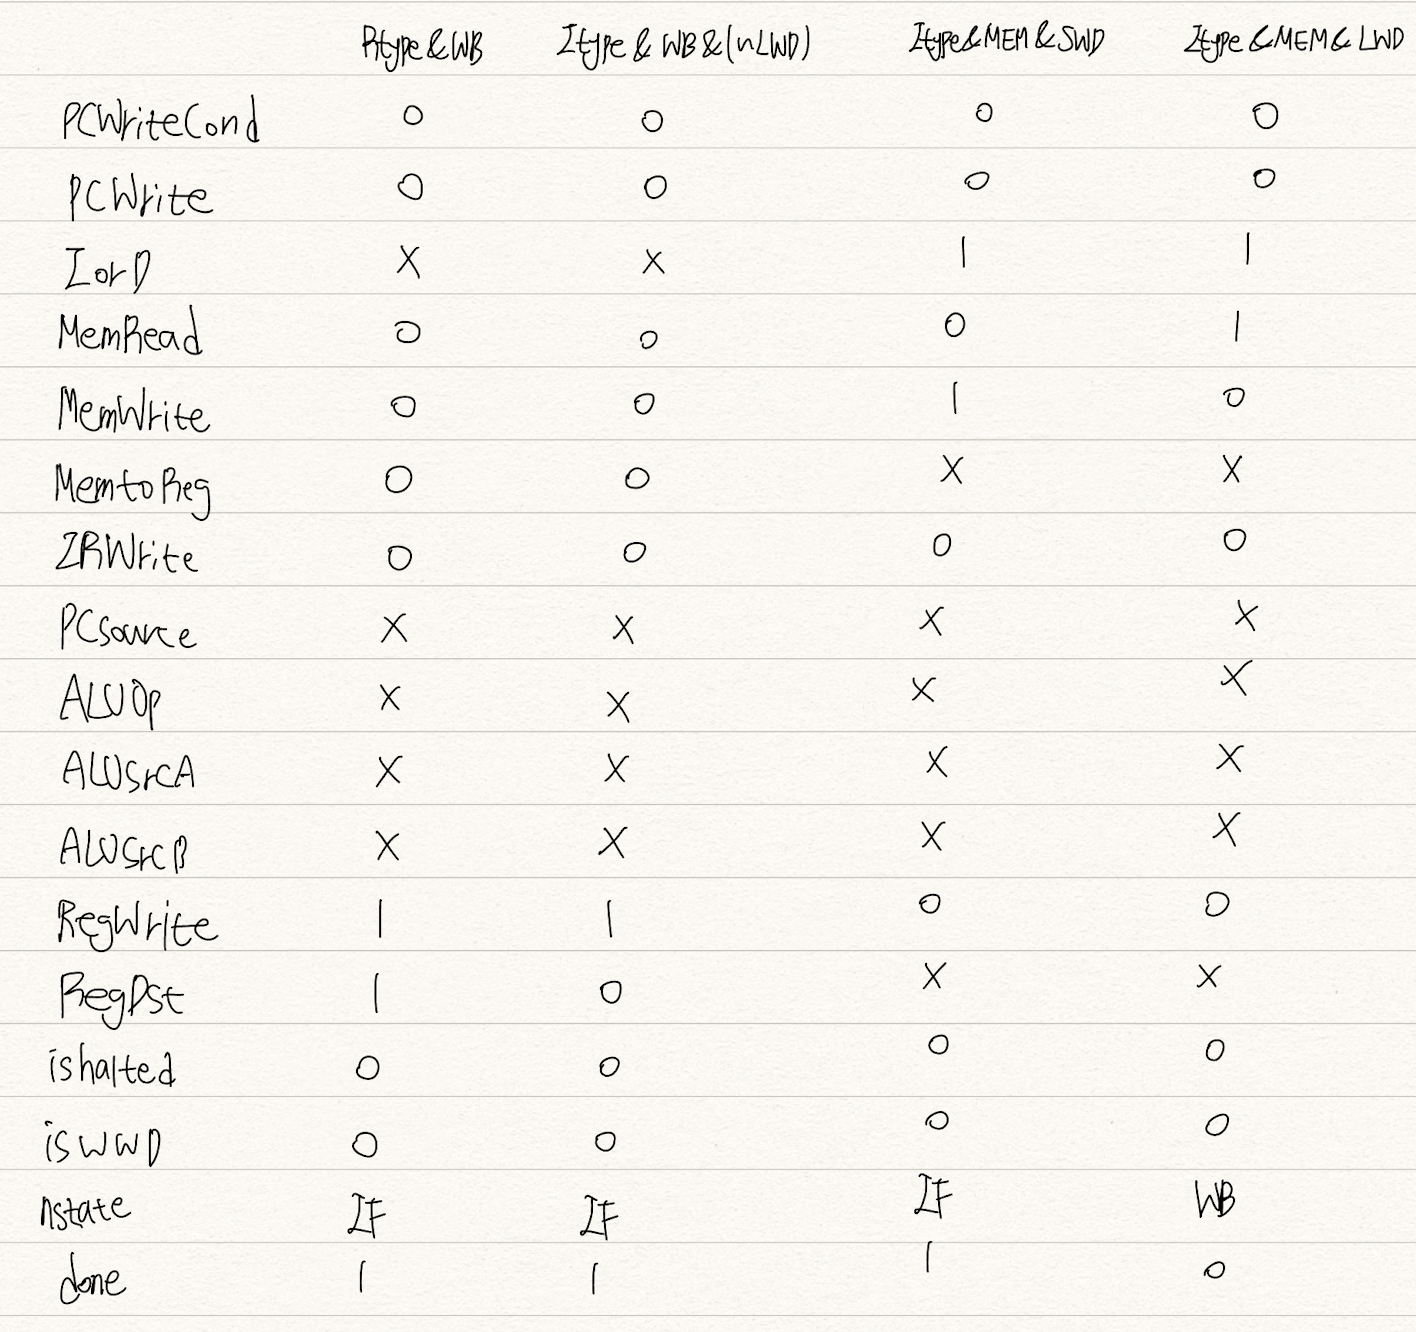 Rtype & WB Itype & WB & (nLWD) Itype & MEM & SWD Itype & MEM & LWD
PCWriteCond 0 0 0 0
PCWrite 0 0 0 0
IorD X X 1 1
MemRead 0 0 0 1
MemWrite 0 0 1 0
MemtoReg 0 0 X X
IRWrite 0 0 0 0
PCsource X X X X
ALUOp X X X X
ALUSrcA X X X X
ALUSrcB X X X X
RegWrite 1 1 0 0
RegDst 1 0 X X
ishalted 0 0 0 0
isWWD 0 0 0 0
nstate IF IF IF WB
done 1 1 1 0